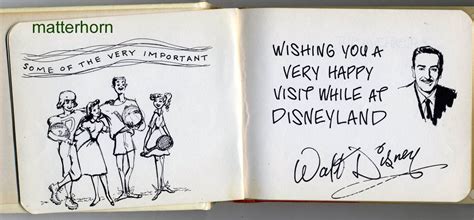 matterhorn
SOME OF THE VERY IMPORTANT
WISHING YOU A
VERY HAPPY
VISIT WHILE AT
DISNEYLAND
Walt Disney